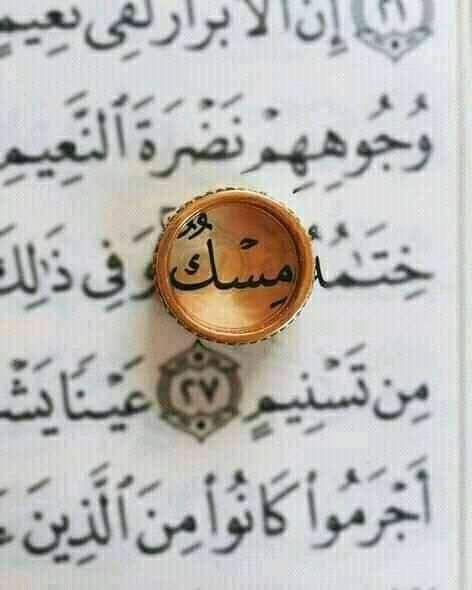 ﴿٢١﴾ إِنَّ ٱلْأَبْرَارَ لَفِى نَعِيمٍ
وُجُوهِهِمْ نَضْرَةَ ٱلنَّعِيمِ
خِتَـٰمُهُۥ مِسْكٌ وَفِى ذَٰلِكَ
مِن تَسْنِيمٍ ﴿٢٧﴾ عَيْنًا يَشْ
أَجْرَمُوا۟ كَانُوا۟ مِنَ ٱلَّذِينَ ءَ